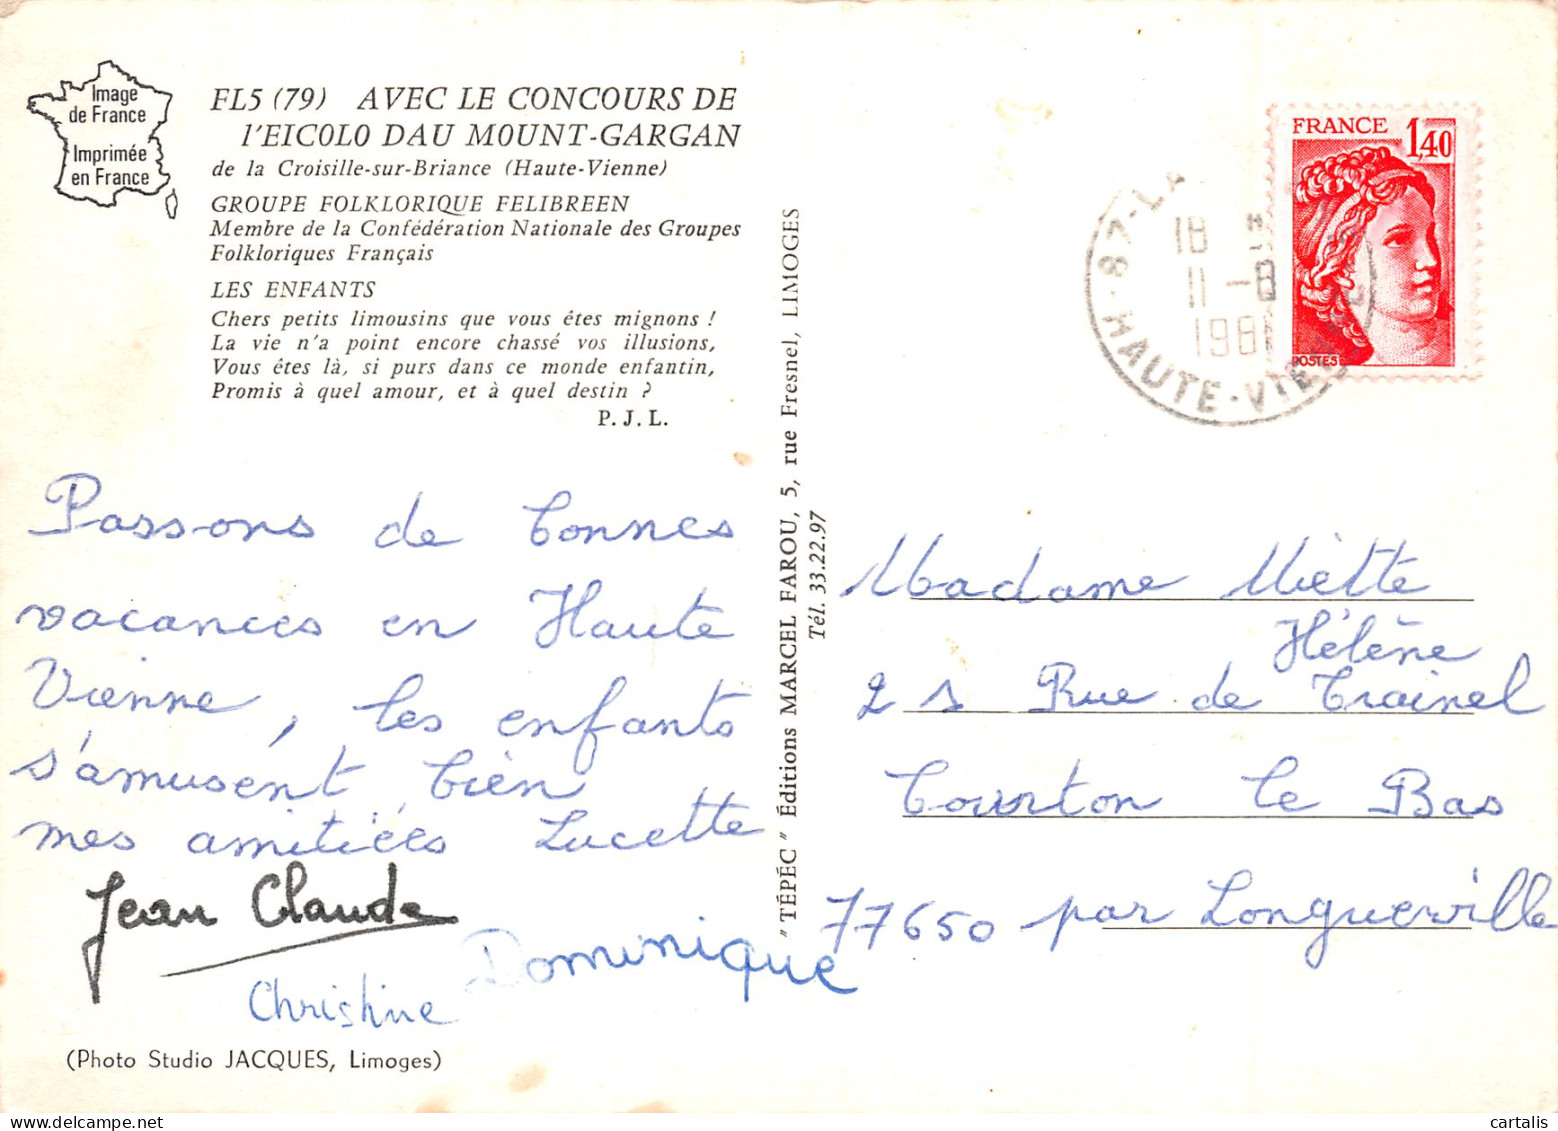 Image
de France
Imprimée
en France
FL5 (79) AVEC LE CONCOURS DE
l'EICOLO DAU MOUNT-GARGAN
de la Croisille-sur-Briance (Haute-Vienne)
GROUPE FOLKLORIQUE FELIBREEN
Membre de la Confédération Nationale des Groupes
Folkloriques Français
LES ENFANTS
Chers petits limousins que vous êtes mignons !
La vie n'a point encore chassé vos illusions,
Vous êtes là, si purs dans ce monde enfantin,
Promis à quel amour, et à quel destin ?
P. J. L.
Passons de bonnes
vacances en Haute
Vienne, les enfants
s'amusent bien
mes amitiées Lucette
Jean Claude
Christine Dominique
(Photo Studio JACQUES, Limoges)
"TÉPÉC" Éditions MARCEL FAROU, 5, rue Fresnel, LIMOGES
Tél. 33.22.97
FRANCE 1,40
POSTES
87-LA
18 H
11 -8
1981
HAUTE-VIENNE
Madame Miette
Hélène
2 s Rue de Trainel
Courton le Bas
77650 par Longueville
cartalis